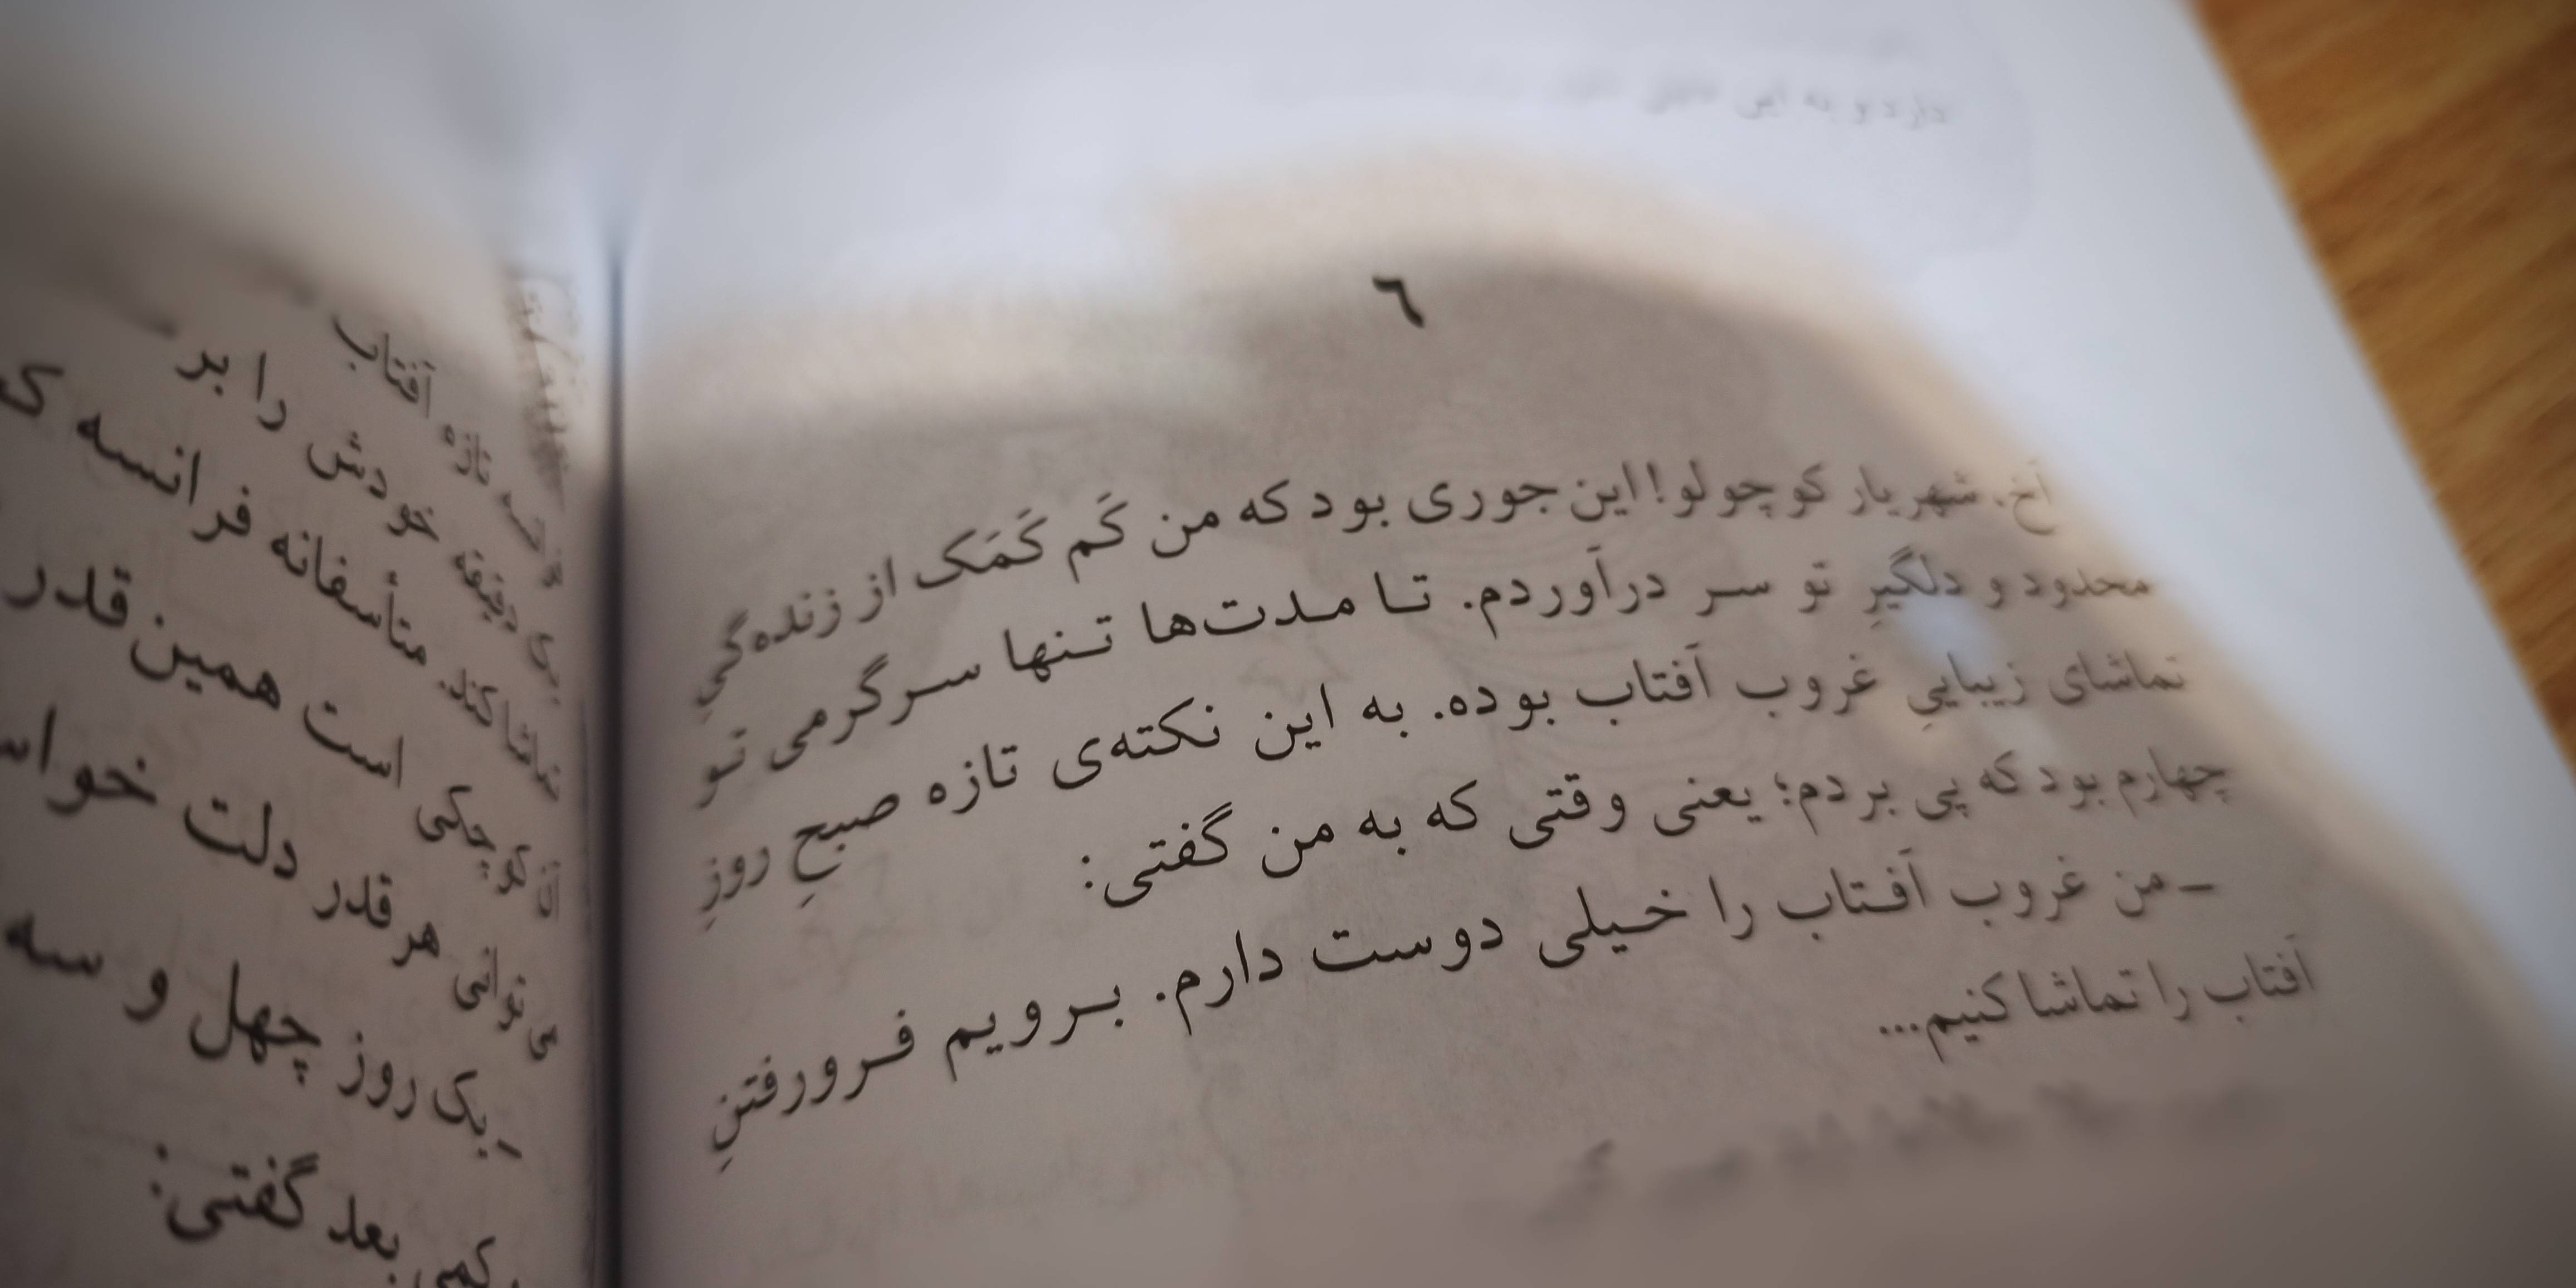 دارد و به این
٦
آخ. شهریار کوچولو! این جوری بود که من کَم کَمَک از زنده‌گیِ
محدود و دلگیرِ تو سر درآوردم. تا مدت‌ها تنها سرگرمی تو
تماشای زیباییِ غروب آفتاب بوده. به این نکته‌ی تازه صبحِ روزِ
چهارم بود که پی بردم؛ یعنی وقتی که به من گفتی:
ـ من غروب آفتاب را خیلی دوست دارم. برویم فرورفتنِ
آفتاب را تماشا کنیم...
تازه آفتاب
دقیقه خودش را بر
تماشا کند. متأسفانه فرانسه
کوچکی است همین قدر
می‌توانی هر قدر دلت
ـ یک روز چهل و سه
کمی بعد گفتی: